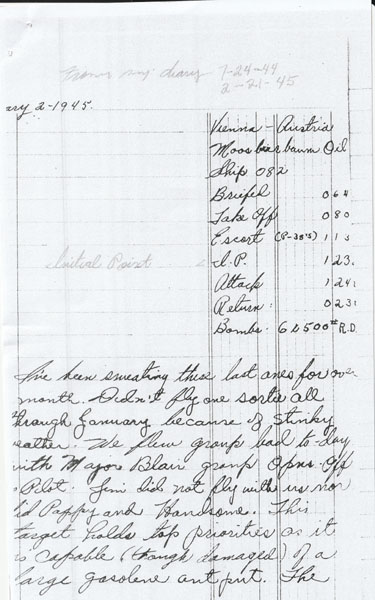 From my diary 7-24-44
2-21-45
ary 2-1945.
Vienna - Austria
Moosbierbaum Oil
Ship 082
Briefed 064
Take Off 080
Escort (P-38's) 113
Initial Point
I.P. 123
Attack 124
Return: 023
Bombs: 6x500# R.D.
I've been sweating these last ones for over
month. Didn't fly one sortie all
through January because of stinky
eather. We flew group lead to-day
with Major Blair group Opns. Off
Pilot. Jim did not fly with us nor
id Pappy and Handsome. This
target holds top priorities as it
s capable (though damaged) of a
large gasolene out put. The